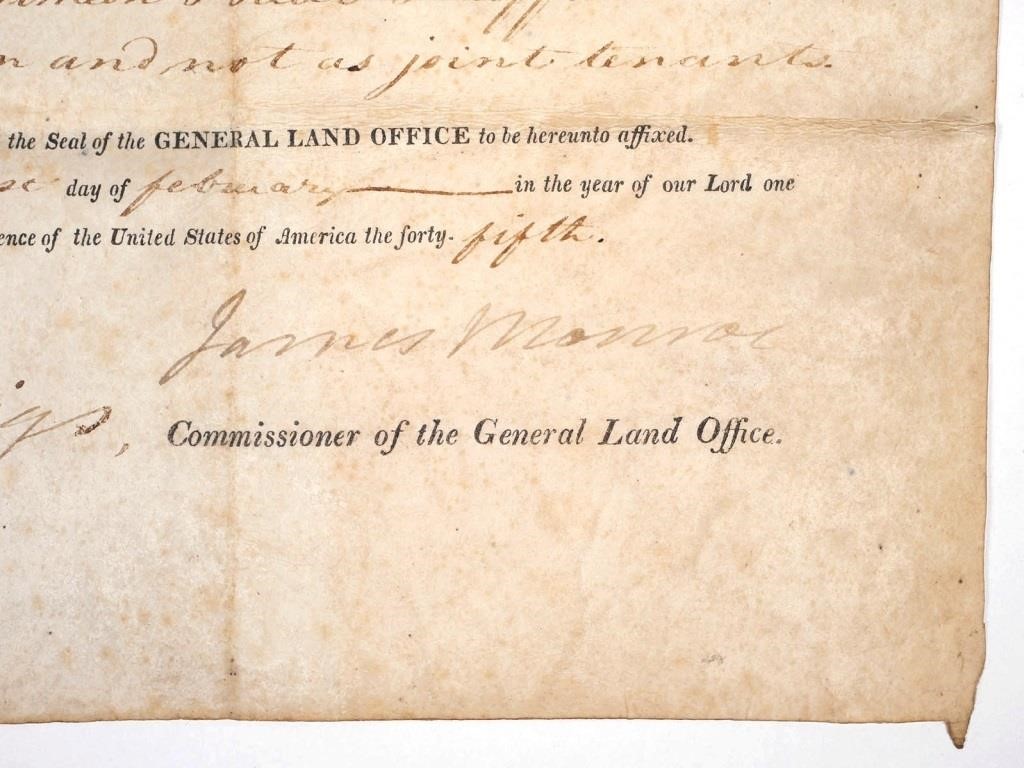 n and not as joint tenants.
the Seal of the GENERAL LAND OFFICE to be hereunto affixed.
st day of february in the year of our Lord one
ence of the United States of America the forty-fifth.
James Monroe
gs, Commissioner of the General Land Office.